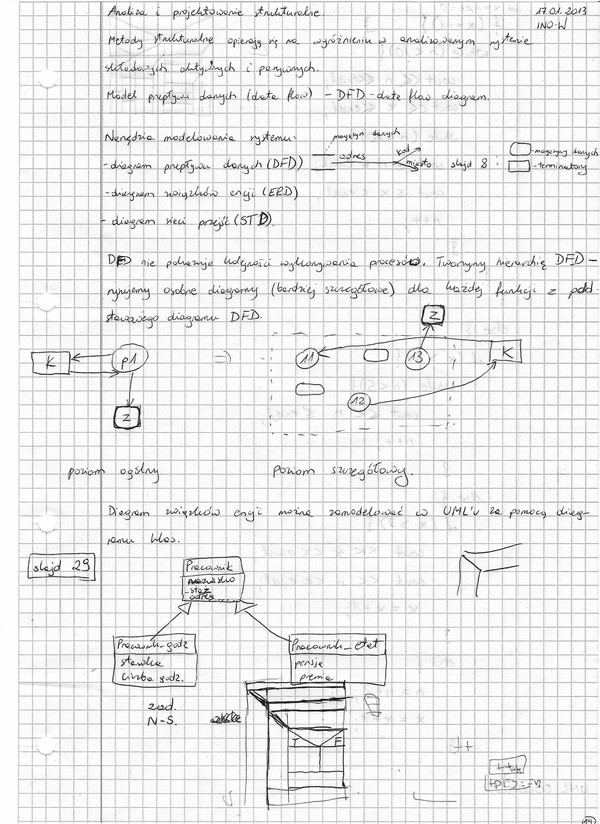 Analiza i projektowanie strukturalne.
17.01.2013
INO-W
Metody strukturalne opierają się na wyróżnieniu w analizowanym systemie
składowych aktywnych i pasywnych.
Model przepływu danych (data flow) - DFD - data flow diagram.
Narzędzia modelowania systemu:
magazyn danych
- diagram przepływu danych (DFD)
adres
kod
miasto
slajd 8:
- magazyny danych
- terminatory
- diagram związków encji (ERD)
- diagram sieci przejść (STD).
DFD nie pokazuje kolejności wykonywania procesów. Tworzymy hierarchię DFD -
rysujemy osobne diagramy (bardziej szczegółowe) dla każdej funkcji z pod-
stawowego diagramu DFD.
K
p1
z
=>
11
13
z
K
12
poziom ogólny
poziom szczegółowy.
Diagram związków encji można zamodelować w UML'u za pomocą diag-
ramu klas.
slajd 29
Pracownik
nazwisko
staż
adres
Pracownik_godz
stawka
liczba godz.
Pracownik_etat
pensja
premia
zad.
N-S.
T
F
++
14